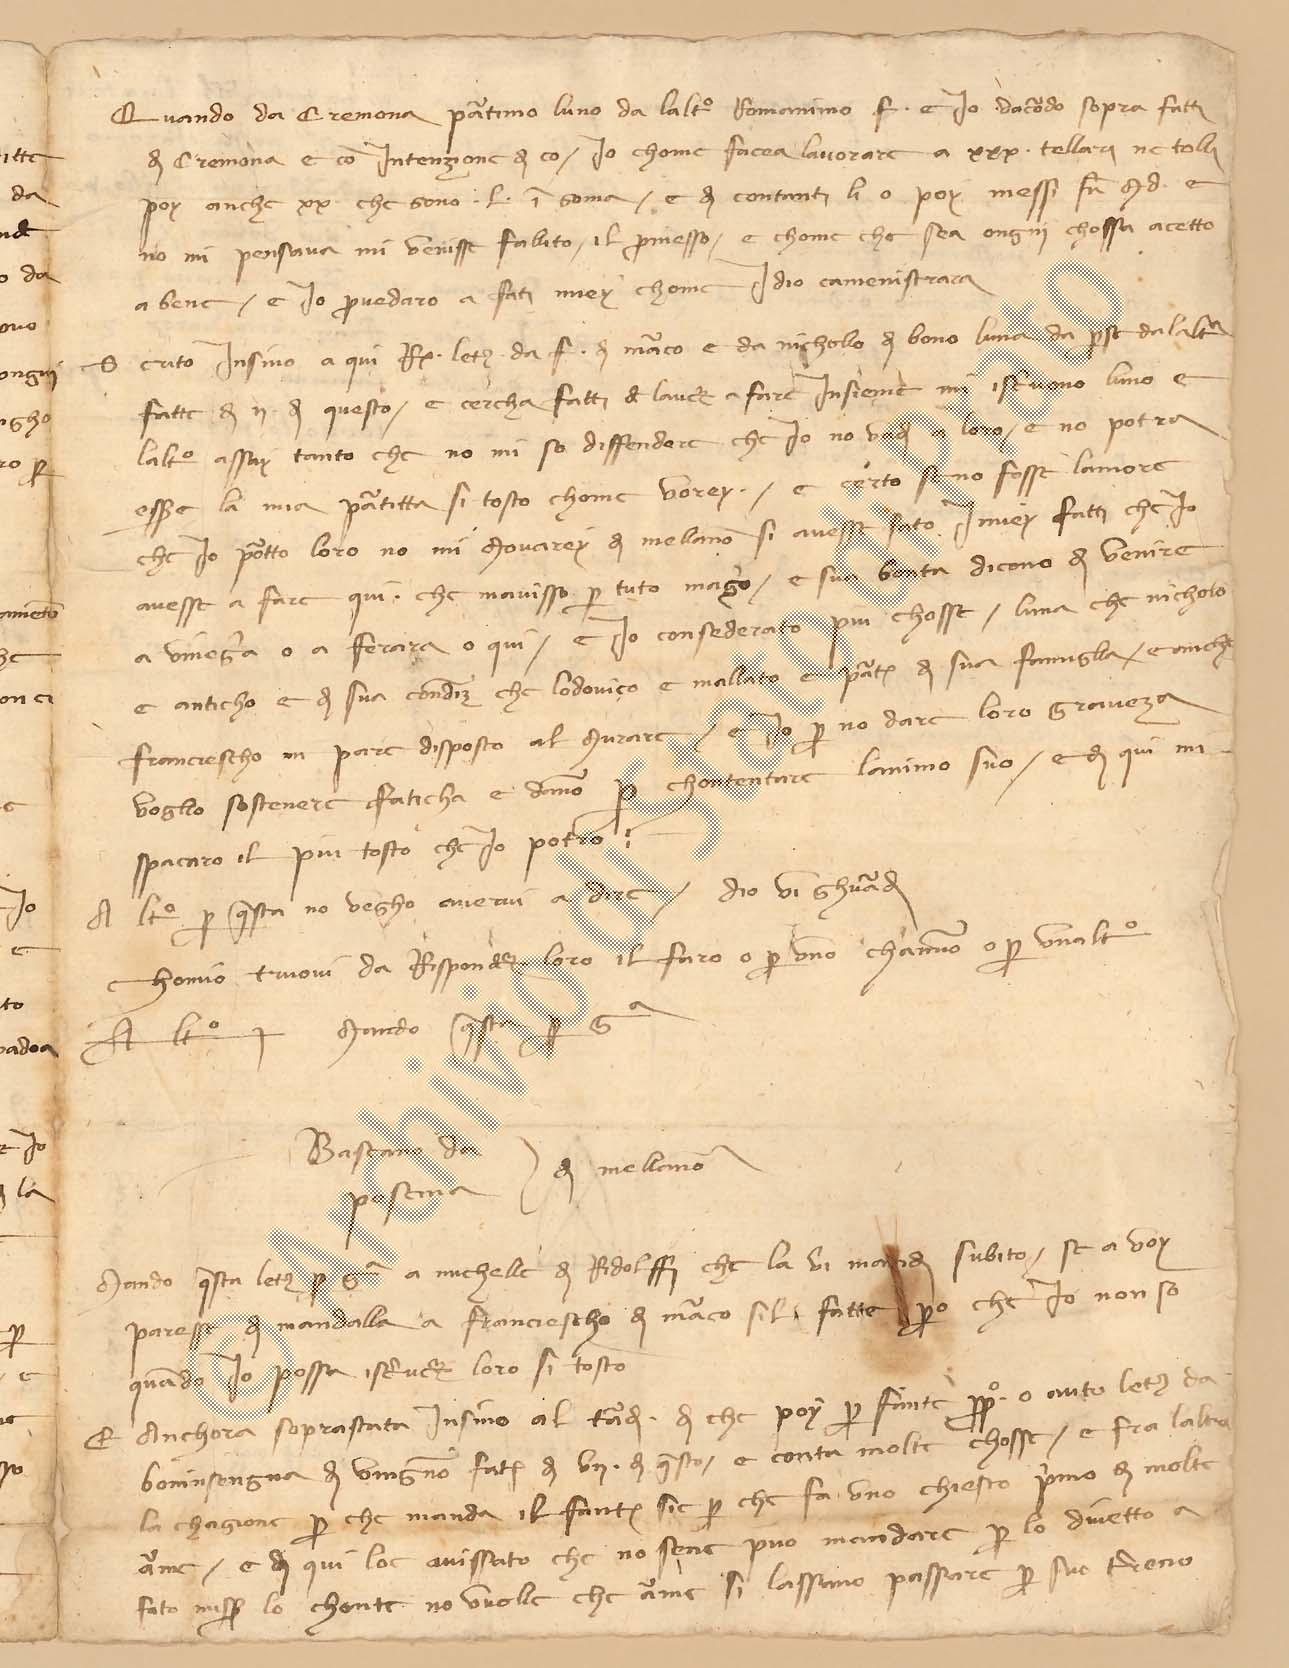 Quando da Cremona partimo luno da laltro romanimo f. e Io dacordo sopra fatti
di Cremona e co Intenzione di co / Io chome facea lavorare a xxx. tellari ne tolli
poy anche xx. che sono .L. i soma / e di contanti li o poy messi
no mi pensava mi venisse fallito / il promesso / e chome che sea ongni chossa acetto
a bene / e Io provedaro a fati miey chome Idio
Scrito Insino a qui letr. da f. di marco e da nicholo di bono luna da per se dalaltra
fatte di di questo / e cercha fatti de laver a fare Insieme mi iscrivono luno e
laltro assay tanto che no mi so diffendere che Io no vadi a loro / e no potra
essere la mia partitta si tosto chome vorey . / e certo se no fosse lamore
che Io portto loro no mi movarey di melano si avesse fato I miey fatti che Io
avesse a fare qui . che navisso per tuto mago / e sua bonta dicono di venire
a vinegia o a ferara o qui / e Io consederato piu chosse / luna che nicholo
e anticho e di sua condiz. che lodovico e mallato e part. di sua famiglia / e anche
franciescho in pare disposto al murare / e Io per no dare loro graveza
voglio sostenere faticha e dano per chontentare lanimo suo / e di qui mi
spacaro il piu tosto che Io potro
Altro per questa no vegho avervi a dire / dio vi ghuardi
chomio truovi da Rispondere loro il faro o per uno chamino o per unaltro
Altro j mando questa per Ga
Bascano da
pescina di mellano
Mando questa letr. per Ga a michele di Ridolffi che la vi mandi subito / se a voy
paresse di mandalla a franciescho di marco sil fatte pero che Io non so
quando Io possa iscrivere loro si tosto
E Anchora soprastata Insino al tardi . di che poy per fante propo. o auto letr. da
boninsengna di vingnone fat. di vij . di questo / e conta molte chosse / e fra laltra
la chagione per che manda il fante sie per che fa uno chiesto primo di molte
arme / e di qui loe avissato che no sene puo mandare per lo divetto a
fato misser lo chonte no vuole che arme si lassano passare per suo tereno